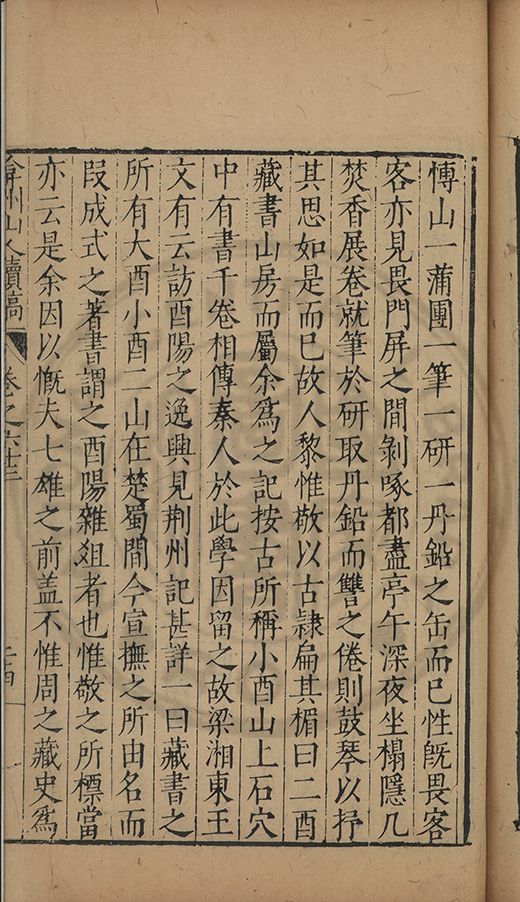 愽山一蒲團一筆一研一丹鉛之缶而已性旣畏客
客亦見畏門屏之間剝啄都盡亭午深夜坐榻隱几
焚香展卷就筆於研取丹鉛而讐之倦則鼓琴以抒
其思如是而已故人黎惟敬以古隷扁其楣曰二酉
藏書山房而屬余爲之記按古所稱小酉山上石穴
中有書千卷相傳秦人於此學因留之故梁湘東王
文有云訪酉陽之逸興見荆州記甚詳一曰藏書之
所有大酉小酉二山在楚蜀間今宣撫之所由名而
段成式之著書謂之酉陽雜俎者也惟敬之所標當
亦云是余因以慨夫七雄之前盖不惟周之藏史爲
弇州山人續稿 卷之六十三